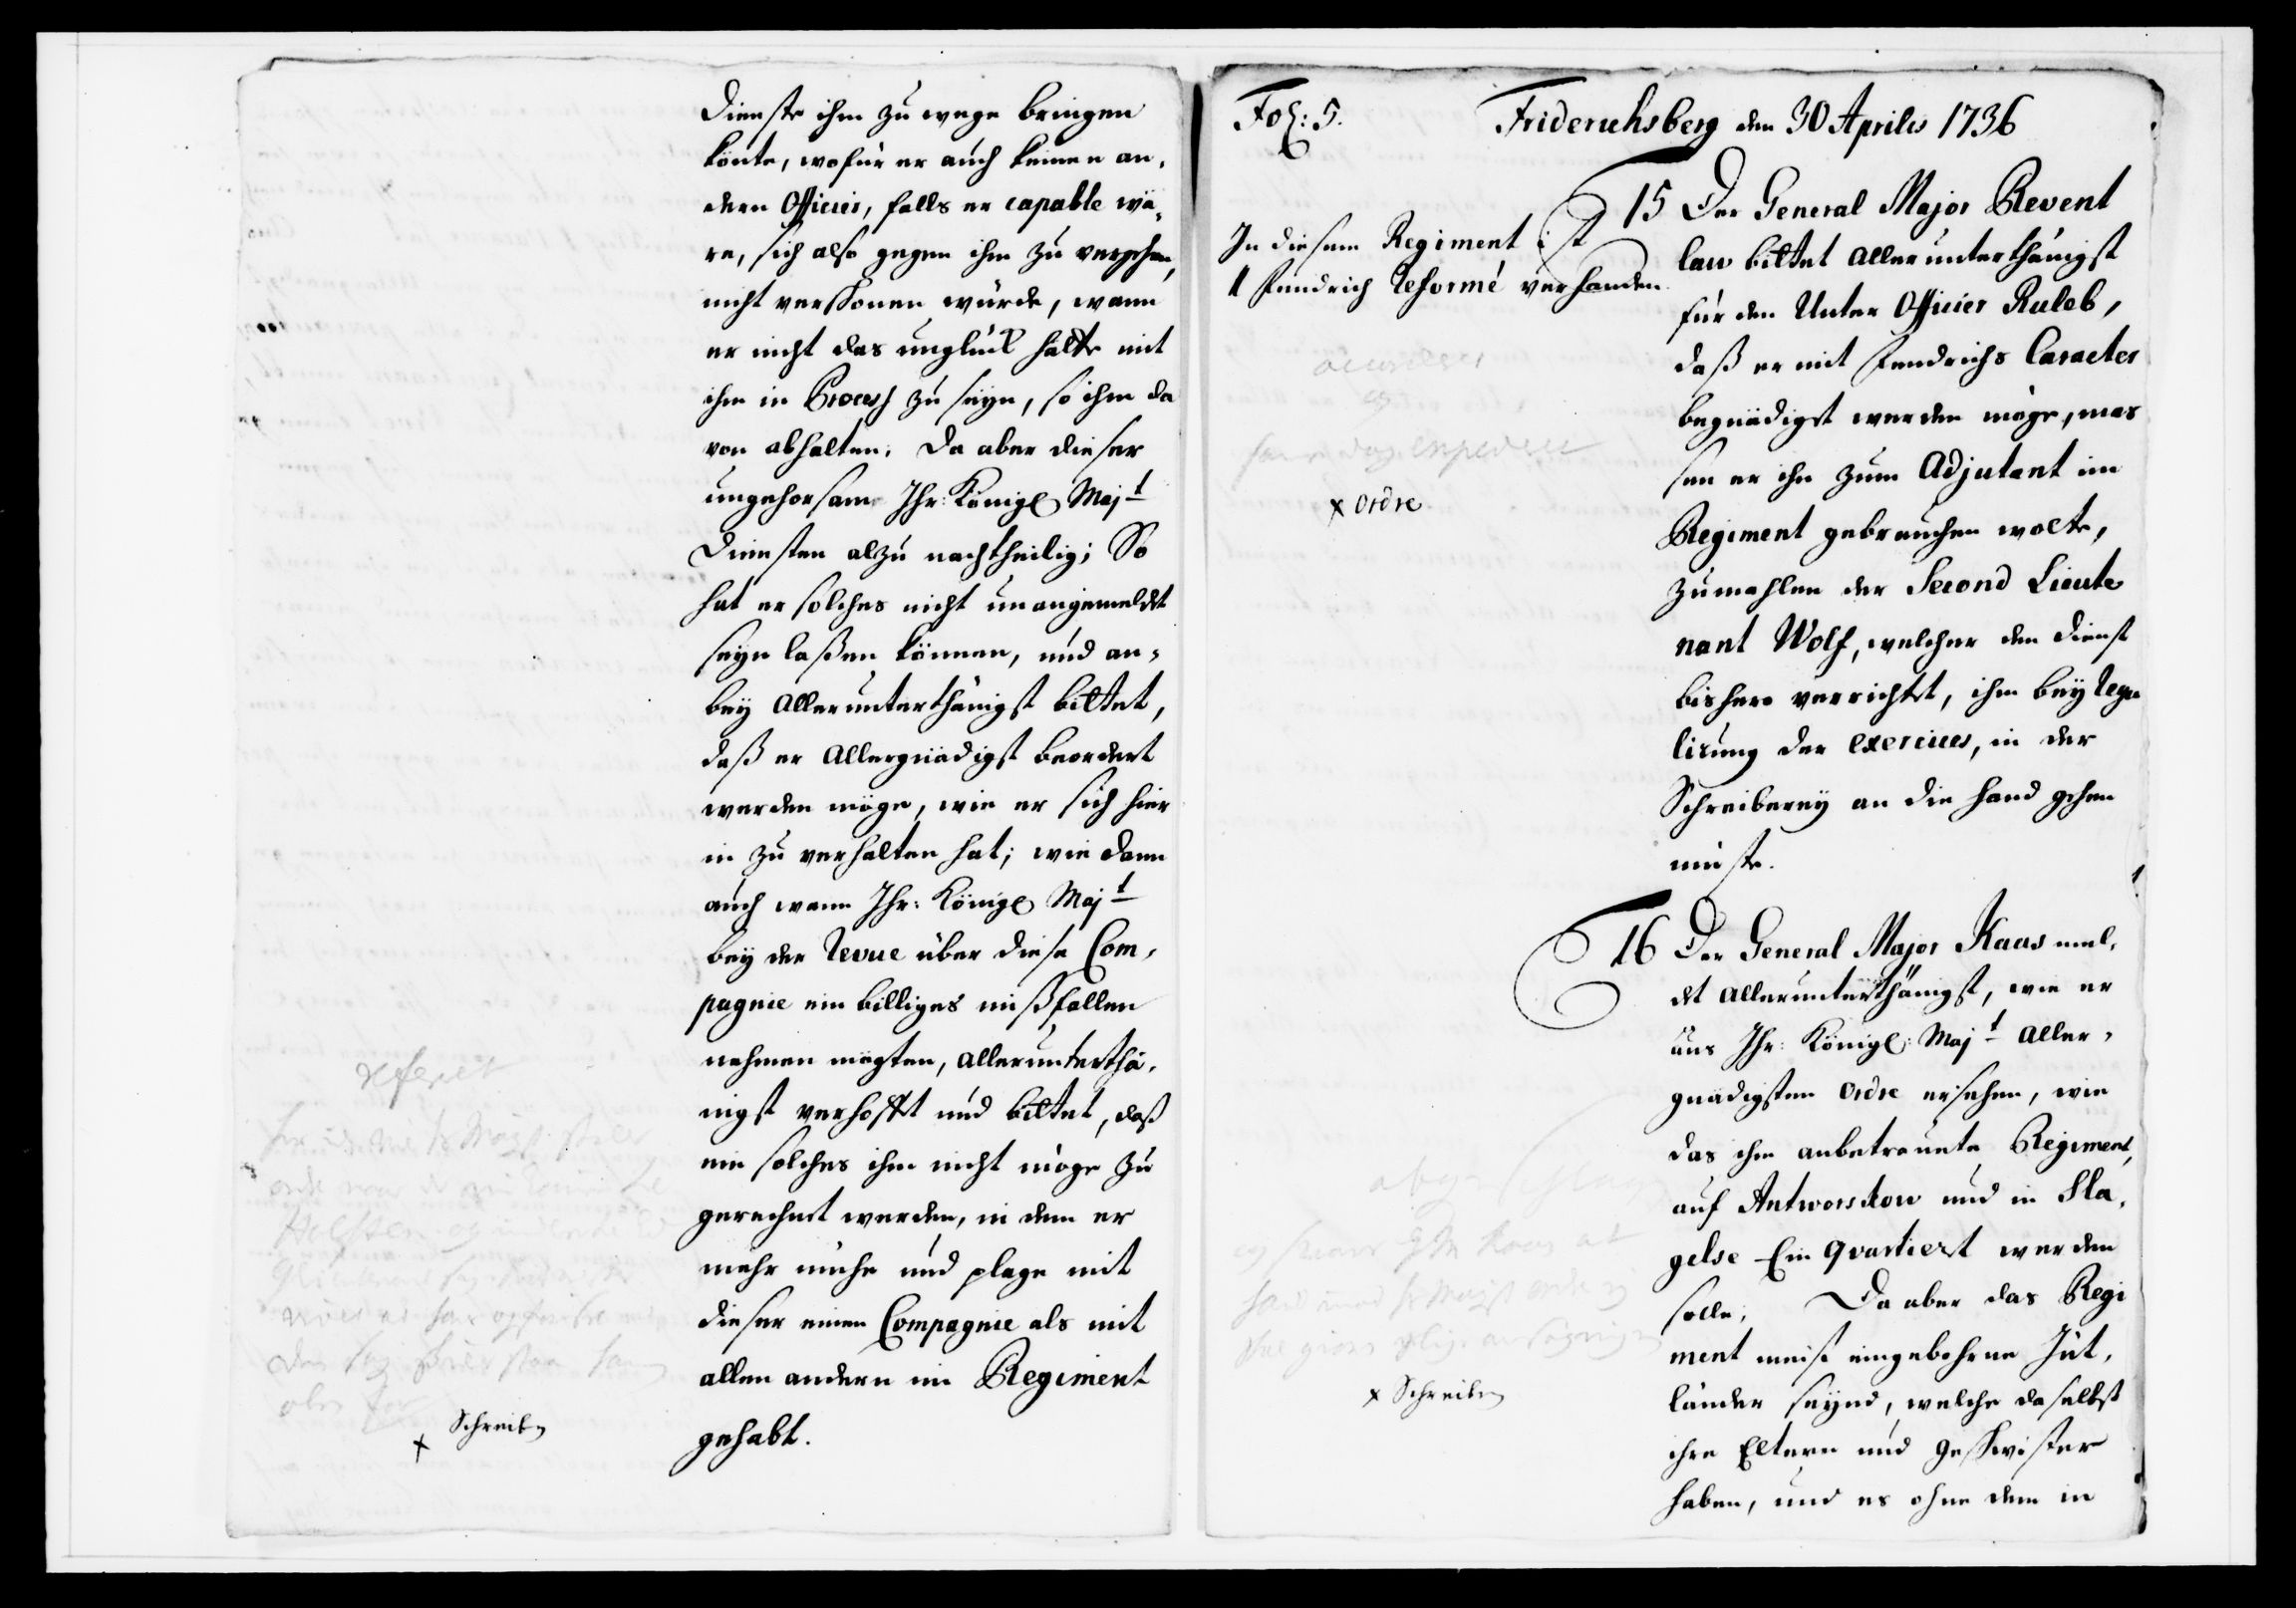 Dienste ihm zu wege bringen
könte, wofür er auch keinen an,
dern Officier, falls er capable wä,
re, sich also gegen ihm zu vergehen,
nicht verschonen würde, wann
er nicht das unglück hätte mit
ihm in Process zu seyn, so ihm da
von abhalten; Da aber dieser
ungehorsam Ihr: Königl Majt
Diensten alzu nachtheilig; So
hat er solches nicht unangemeldt
seyn laßen können, und an,
bey allerunterthänigst bittet,
daß er allergnädigst beordert
werden möge, wie er sich hier
in zu verhalten hat; wie dann
auch wann Ihr: Königl Majt
bey der Revue über diese Com,
pagnie ein billiges mißfallen
nehmen mögten, allerunterthä,
nigst verhofft und bittet, daß
ein solches ihm nicht möge zu
gerechnet werden, in dem er
mehr mühe und plage mit
dieser einen Compagnie als mit
allen andern im Regiment
gehabt.
referet
x Schreiben
Fol: 5. Friderichsberg den 30 Aprilis 1736
In diesem Regiment ist
1 Fendrich Reformé verhanden.
accordert
x ordre
15 Der General Major Revent
lau bittet allerunterthänigst
für den Unter Officier Ruleb,
daß er mit Fendrichs Caracter
begnädigst werden möge, mas
sen er ihn zum Adjutant im
Regiment gebrauchen wolte,
zumahlen der Second Lieute
nant Wolf, welcher den Dienst
bishero verrichtet, ihm bey Regu
lirung der exercices, in der
Schreiberey an die Hand gehen
müste.
16 Der General Major Kaas mel,
det allerunterthänigst, wie er
aus Ihr: Königl: Majt Aller,
gnädigsten ordre ersehen, wie
das ihm anbetraute Regiment,
auf Antworskow und in Sla,
gelse Ein qvartiert werden
solle; Da aber das Regi
ment meist eingebohrne Jüt,
länder seynd, welche daselbst
ihre Eltern und geschwister
haben, und es ohne dem in
x Schreiben